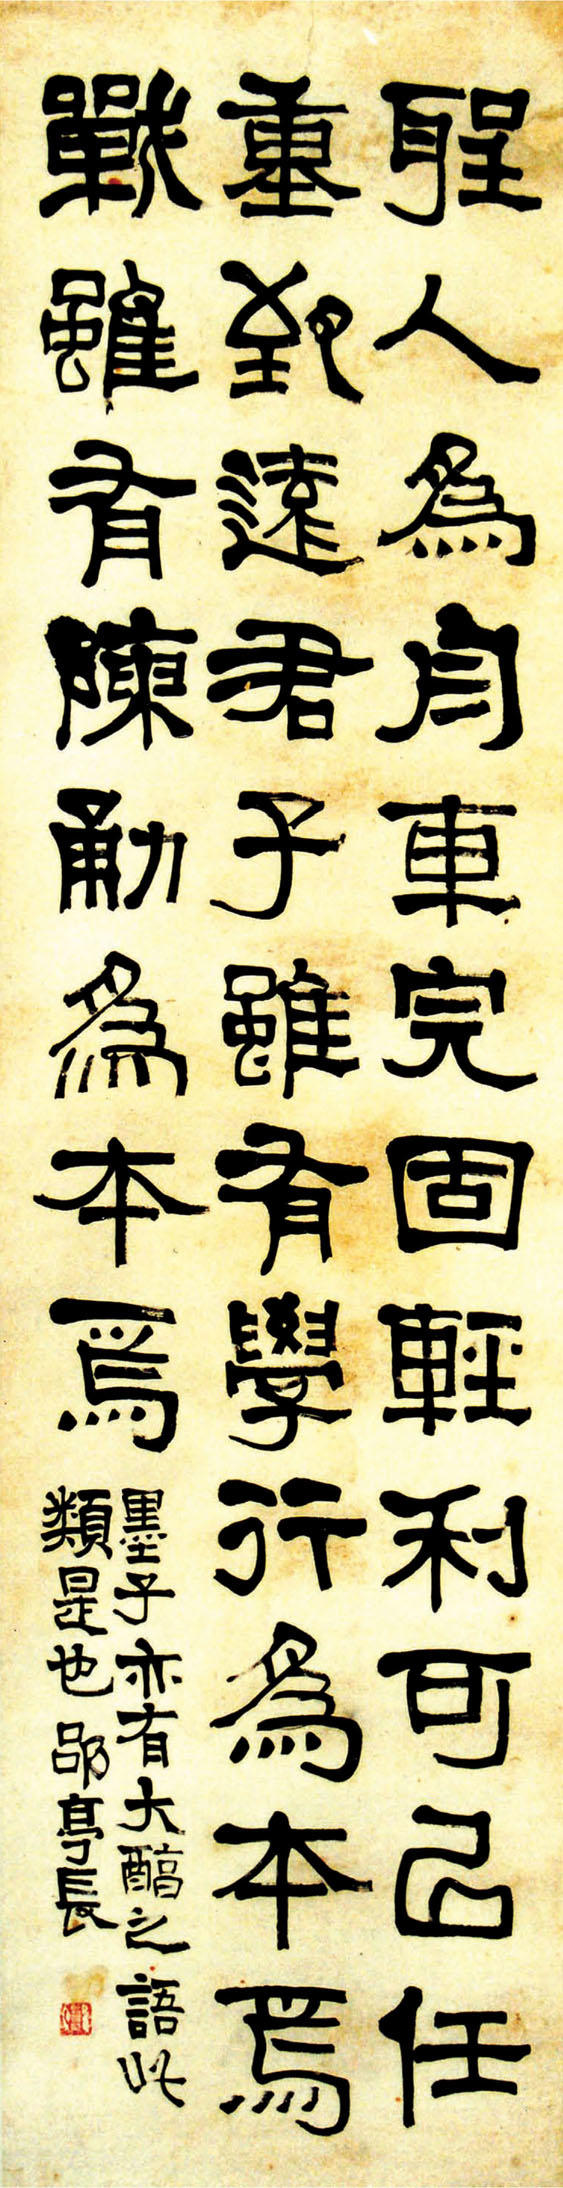 聖人為舟車完固輕利可以任
重致遠君子雖有學行為本焉
戰雖有陳勇為本焉
墨子亦有大醇之語此
類是也郘亭長